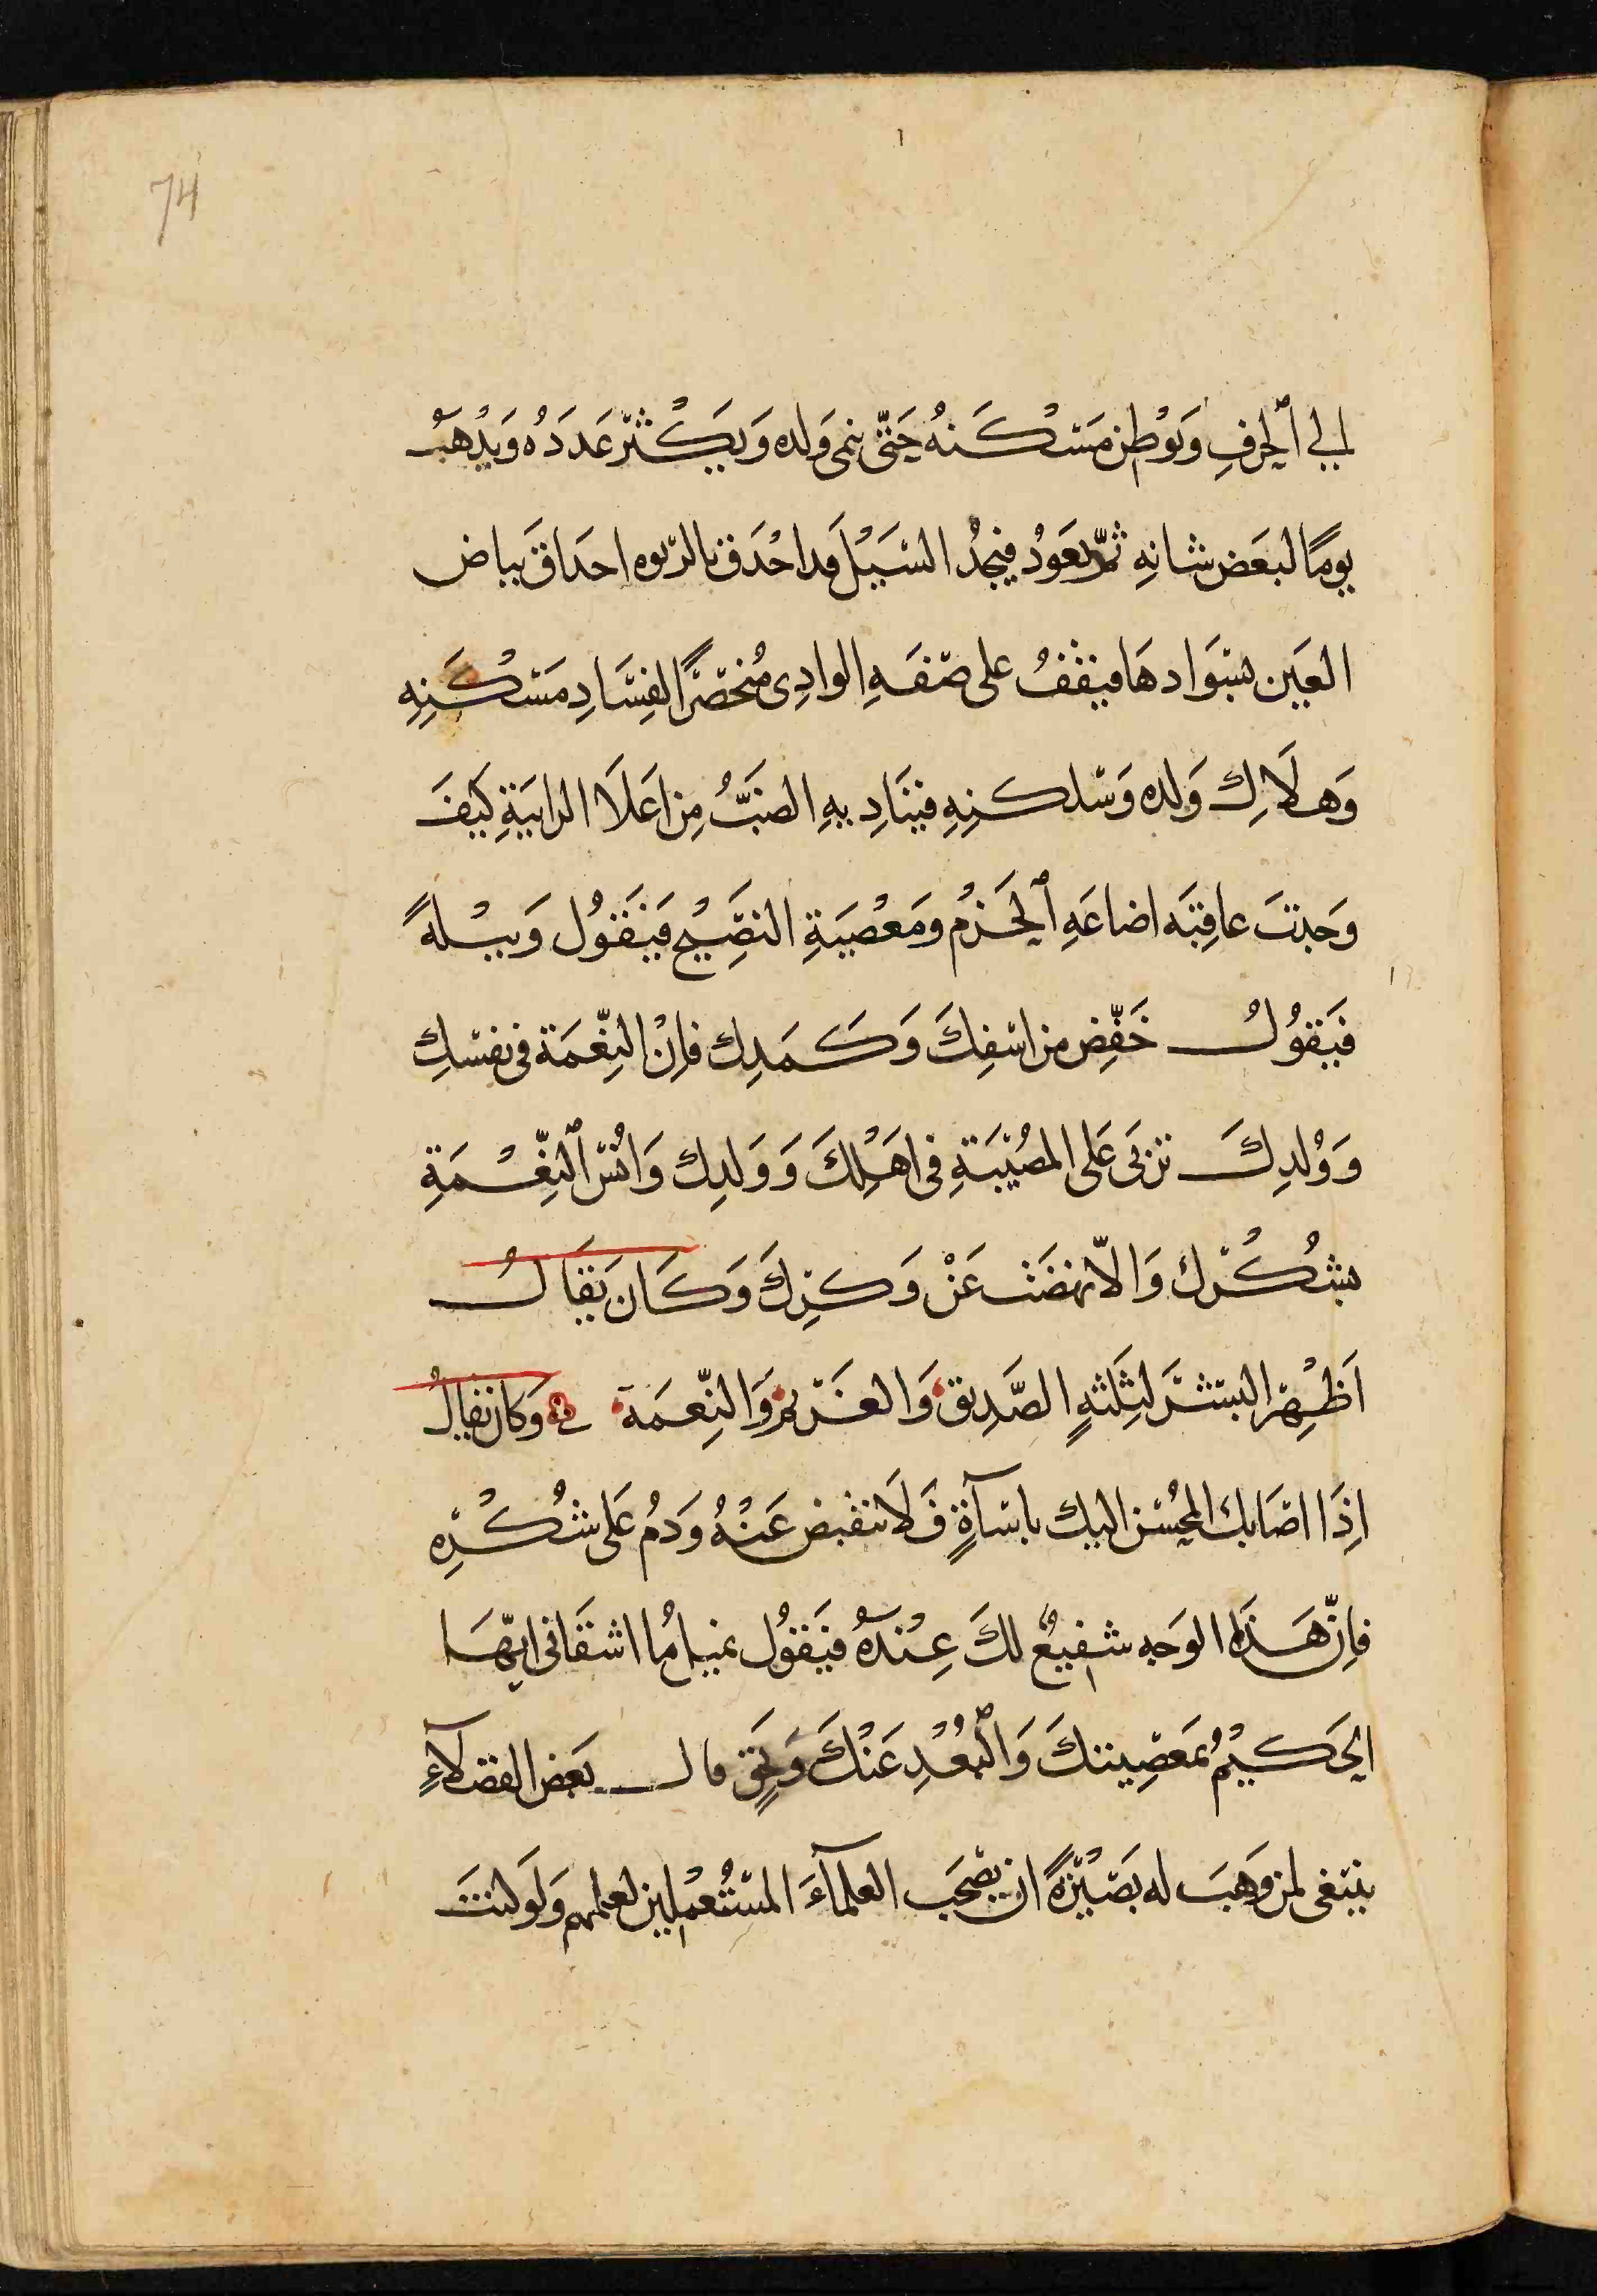 74
الي الجرفِ وَيوْطن مَسْكَنهُ حَتّى ينمى وَلده وَيَكْثر عَدَدُه وَيذْهبُ
يومًا لبعَض شانهِ ثمّ يعَودُ فيجدُ السَيْل قد احْدَق بالربوه احدَاقَ بياض
العَين بسَوادهَا فيقفُ على ضفه الوادِى مُتحصرًا لفسَادِ مَسْكَنِهِ
وَهلَاكِ وَلده وَسَكنهِ فينَاديهِ الضبُّ مِن اعَلَا الرابيَةِ كَيفَ
وَجدتَ عاقِبَه اضاعَهِ الحَزمُ ومَعْصيَةِ النصَيحِ فيَقوُل وَبيْلهً
فَيقوُلُ خَفّض من اسفِكَ وَكَمَدِك فإنْ النِّعْمَة فى نفسْكِ
وَوُلدِكَ تربَى عَلى المصُيْبَةِ فى اهَلْكَ وَوَلدِك وَانُسْ النِّعْمَةِ
بشُكْرك وَالاّ نهضَت عَنْ وَكرِكَ وَكَان يَقَالُ
اَظْهِر البشَر لثَلثهٍ الصَّديق وَالغَريم وَالنِّعمَة وَكان يقالُ
اذَا اصَابك المحُسْن اليك باسآةٍ فَلَا تنقبض عَنْهُ وَدمُ عَلى شُكْرِه
فاِنّ هَذا الوَجه شفيعٌ لكَ عِنْدهُ فيَقوُل ما اشقَانى ايّهَا
الحَكيْمُ بمعَصِيتكَ وَالبعُدِ عَنْكَ وَبحَقٍ قال بَعض الفضلاءِ
ينبَغى لمن وَهبَ له بَصَيْرَةً ان يصْحَب العلمآءَ المسَتُعمْلين لعلمهم وَلَو كنتَ